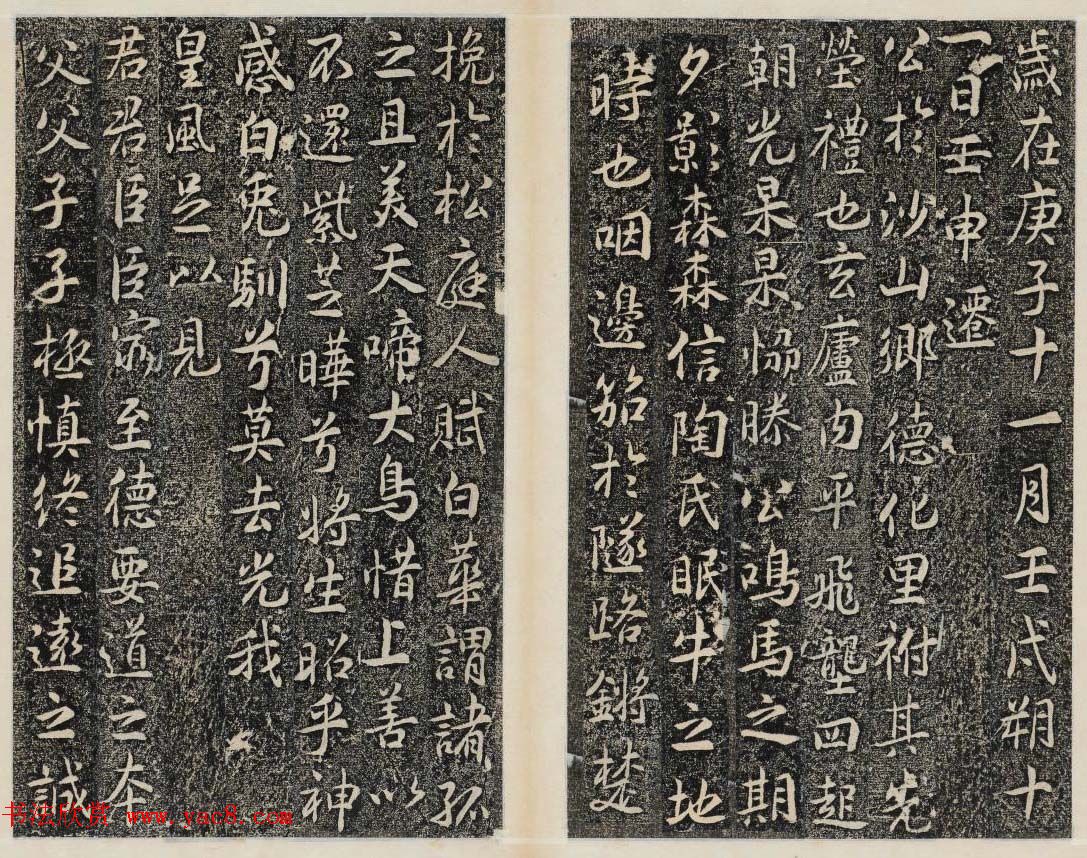 歲在庚子十一月壬戌朔十
一日壬申遷
公於沙山鄉德化里祔其先
塋禮也玄廬內平飛壟四起
朝光杲杲恊滕公鳴馬之期
夕影森森信陶氏眠牛之地
時也咽邊笳於隧路鏘楚
挽於松庭人賦白華謂諸孤
之且美天啼大鳥惜上善以
不還紫芝曄兮將生昭乎神
感白兔馴兮莫去光我
皇風足以見
君君臣臣寔至德要道之本
父父子子極慎終追遠之誠
书法欣赏 www.yac8.com